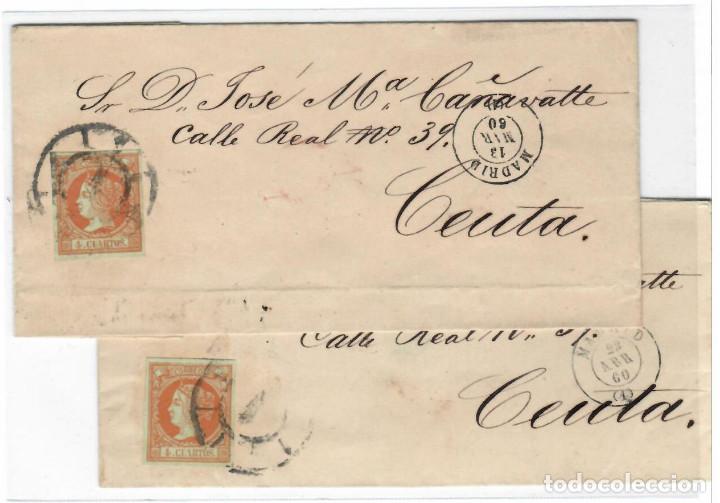 Sr D.n José M.a Cañavatte
Calle Real No. 39.
Ceuta.
MADRID
13
MAR
60
4 CUARTOS.
Calle Real No. 39.
Ceuta.
22
ABR
60
(1)
CORREOS
4 CUARTOS.
todocoleccion